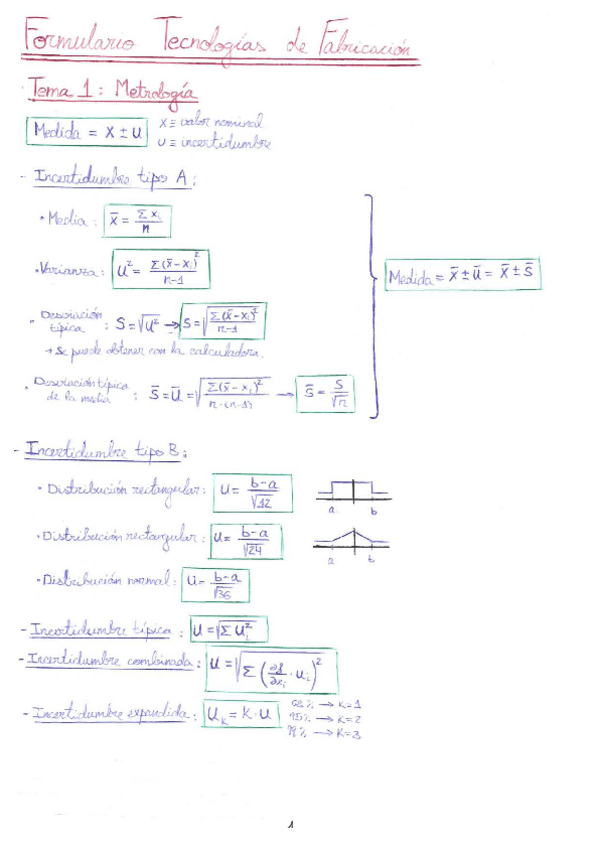 Formulario Tecnologías de Fabricación
Tema 1: Metrología
Medida = X ± U
X ≡ valor nominal
U ≡ incertidumbre
- Incertidumbre tipo A:
• Media: x̄ = Σxᵢ / n
• Varianza: U² = Σ(x̄-xᵢ)² / n-1
• Desviación típica: S = √U² → S = √(Σ(x̄-xᵢ)² / n-1)
→ Se puede obtener con la calculadora.
• Desviación típica de la media: S̄ = Ū = √(Σ(x̄-xᵢ)² / n·(n-1)) → S̄ = S / √n
Medida = x̄ ± ū = x̄ ± s̄
- Incertidumbre tipo B:
• Distribución rectangular: U = b-a / √12
a b
• Distribución rectangular: U = b-a / √24
a b
• Distribución normal: U = b-a / √36
- Incertidumbre típica: U = √Σ Uᵢ²
- Incertidumbre combinada: U = √Σ(∂f/∂xᵢ · uᵢ)²
- Incertidumbre expandida: U_K = K · U
68% → K=1
95% → K=2
99% → K=3
1